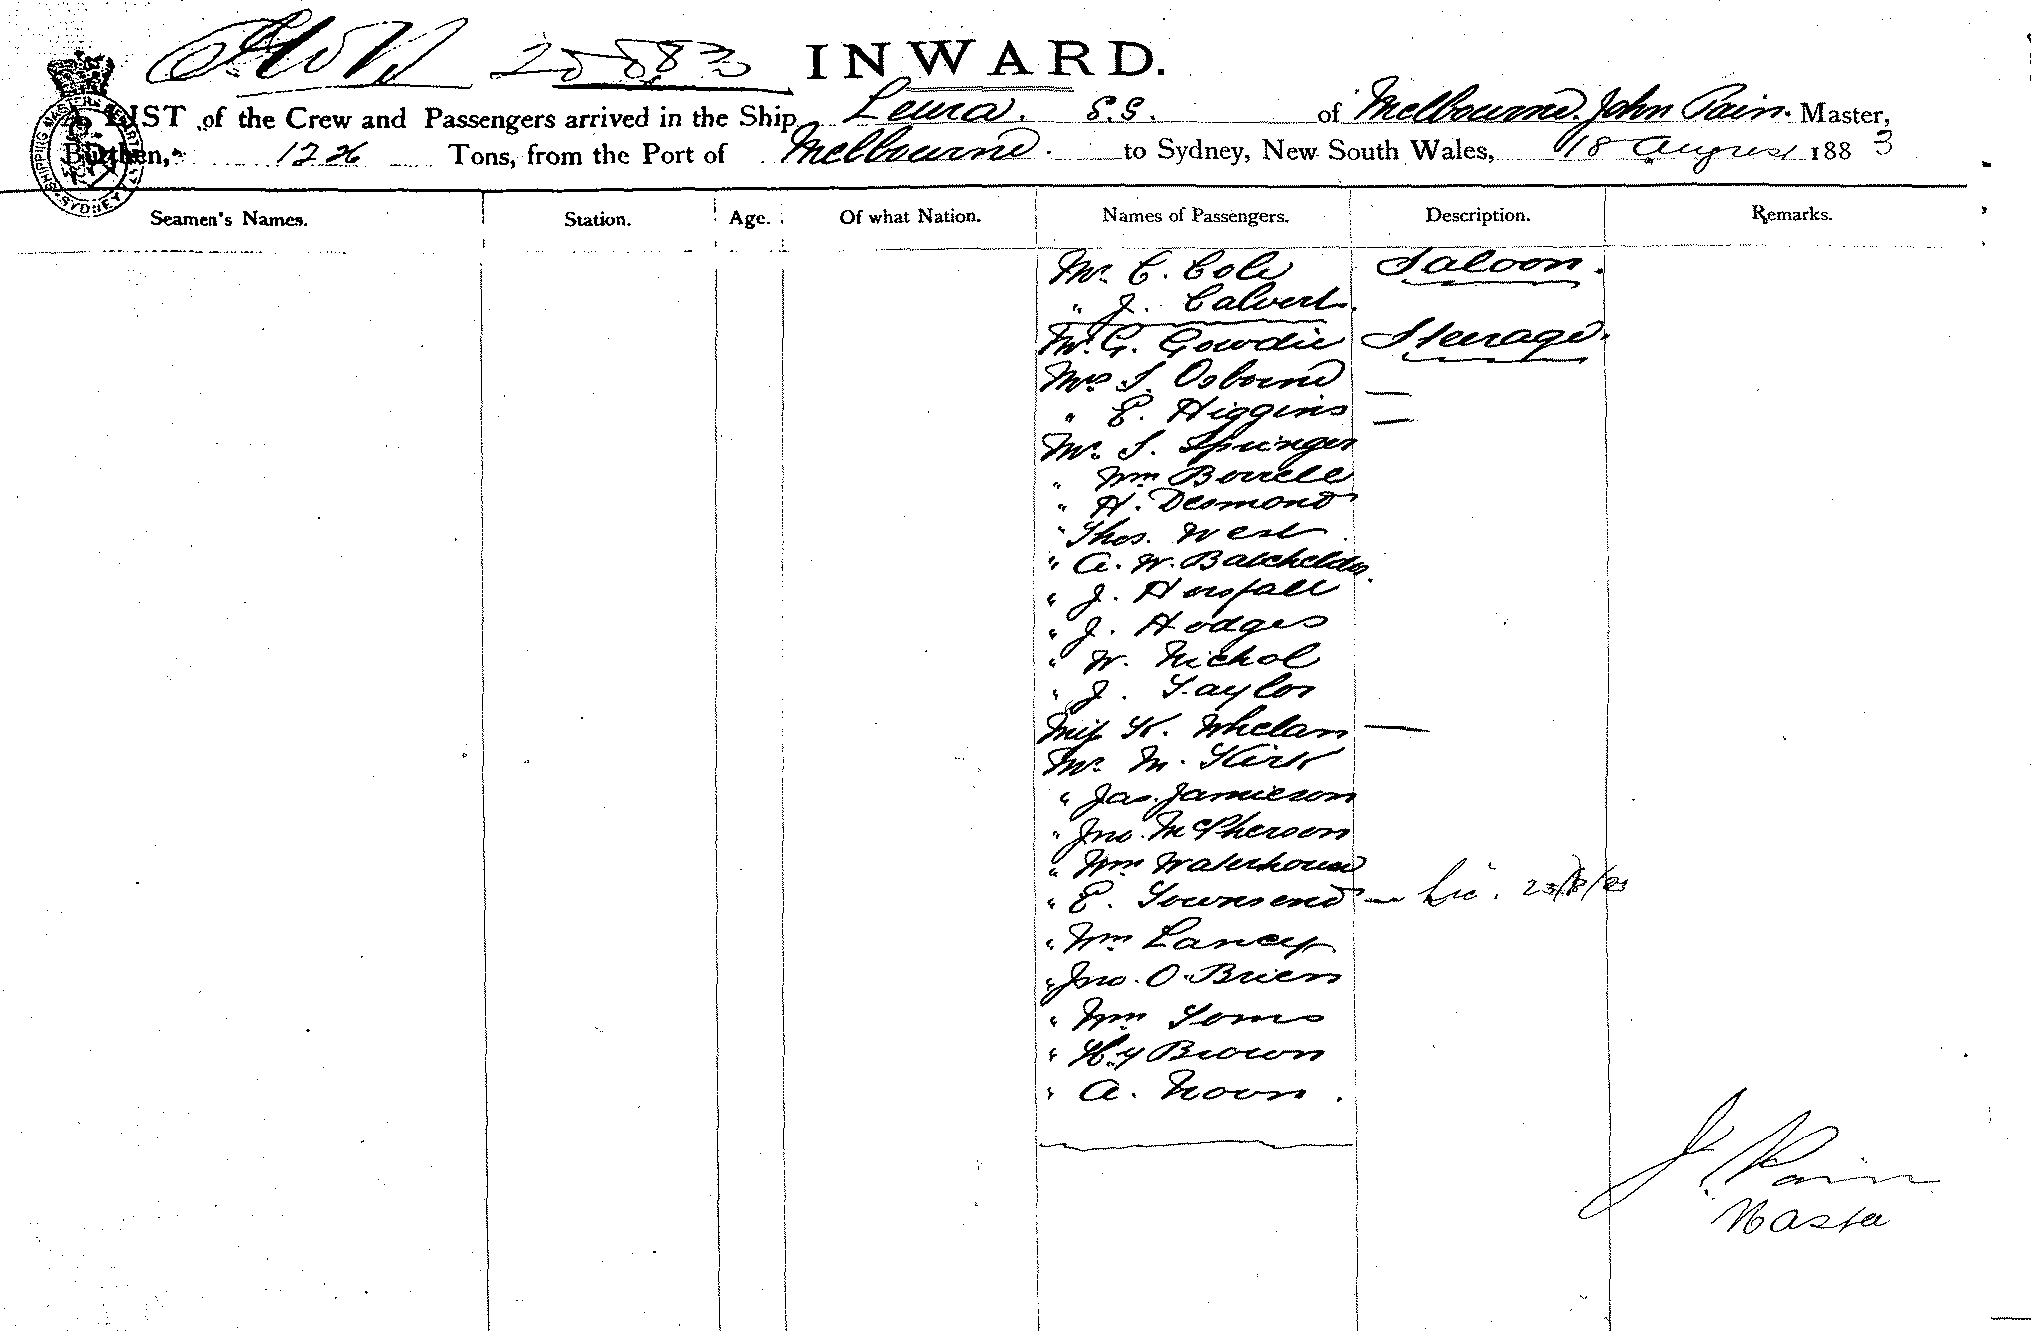 INWARD.
LIST of the Crew and Passengers arrived in the Ship Leura. S.S. of Melbourne. John Pain. Master,
Burthen, 1226 Tons, from the Port of Melbourne. to Sydney, New South Wales, 18 August 1883
Seamen's Names. Station. Age. Of what Nation. Names of Passengers. Description. Remarks.
Mr. C. Cole Saloon.
" J. Calvert.
Mr. G. Gowdie Steerage.
Mrs S. Osborne —
" E. Higgins —
Mr. S. Springer
" Wm Borrell
" H. Desmond
" Thos. West
" A. W. Batchelder.
" J. Horsfall
" J. Hodges
" W. Nichol
" J. Taylor
Miss K. Whelan —
Mr. M. Kirk
" Jas. Jamieson
" Jno. McPherson
" Wm Waterhouse
" E. Townsend — Lic. 23/8/83
" Wm Lancy
" Jno. O'Brien
" Wm Toms
" Hy Brown
" A. Noon.
J. Pain
Master